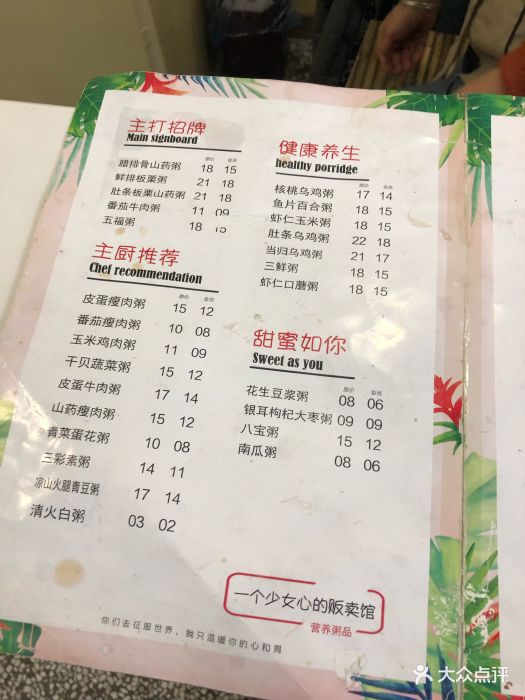 主打招牌
Main signboard
原价 会员
腊排骨山药粥 18 15
鲜排板栗粥 21 18
肚条板栗山药粥 21 18
番茄牛肉粥 11 09
五福粥 18 15
主厨推荐
Chef recommendation
原价 会员
皮蛋瘦肉粥 15 12
番茄瘦肉粥 10 08
玉米鸡肉粥 11 09
干贝蔬菜粥 15 12
皮蛋牛肉粥 17 14
山药瘦肉粥 15 12
青菜蛋花粥 10 08
三彩素粥 14 11
凉山火腿青豆粥 17 14
清火白粥 03 02
健康养生
healthy porridge
原价 会员
核桃乌鸡粥 17 14
鱼片百合粥 18 15
虾仁玉米粥 18 15
肚条乌鸡粥 22 18
当归乌鸡粥 21 17
三鲜粥 18 15
虾仁口蘑粥 18 15
甜蜜如你
Sweet as you
原价 会员
花生豆浆粥 08 06
银耳枸杞大枣粥 09 09
八宝粥 15 12
南瓜粥 08 06
一个少女心的贩卖馆
营养粥品
你们去征服世界，我只温暖你的心和胃
大众点评